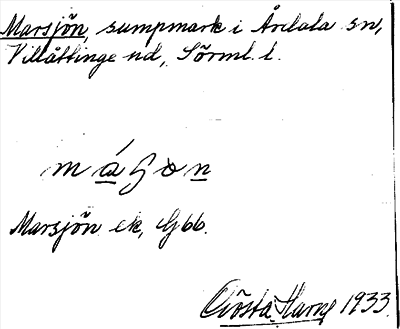 Marsjön, sumpmark i Årdala sn,
Villåttinge hd, Sörml. l.
Marsjön ek, G 66.
Gösta Harne 1933.